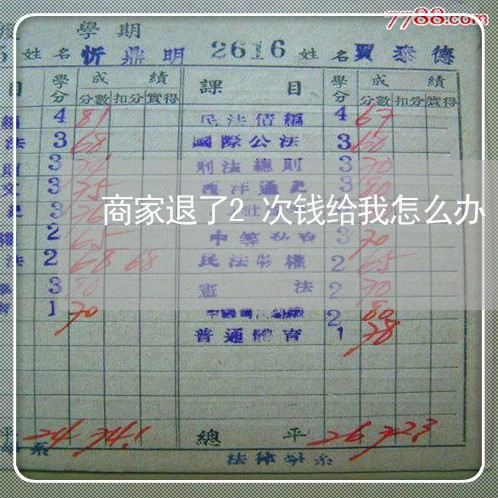 7788.com
學期
姓名 忻鼎明 2616 姓名 賈泰德
目 學分 成績 課目 學分 成績
分數 扣分 實得 分數 扣分 實得
4 81 民法債編 4 67
法 3 68 國際公法 3 60
3 刑法總則 3 70
文 3 75 西洋通史 3 80
3
商家退了2次钱给我怎么办
權 2 65 3 70
法 2 68 68 民法物權 2 65
3 80 憲法 2 70
1 70 2 80
普通體育 1 78
平 24 74.1 總平 26 72.3
系 法律學系